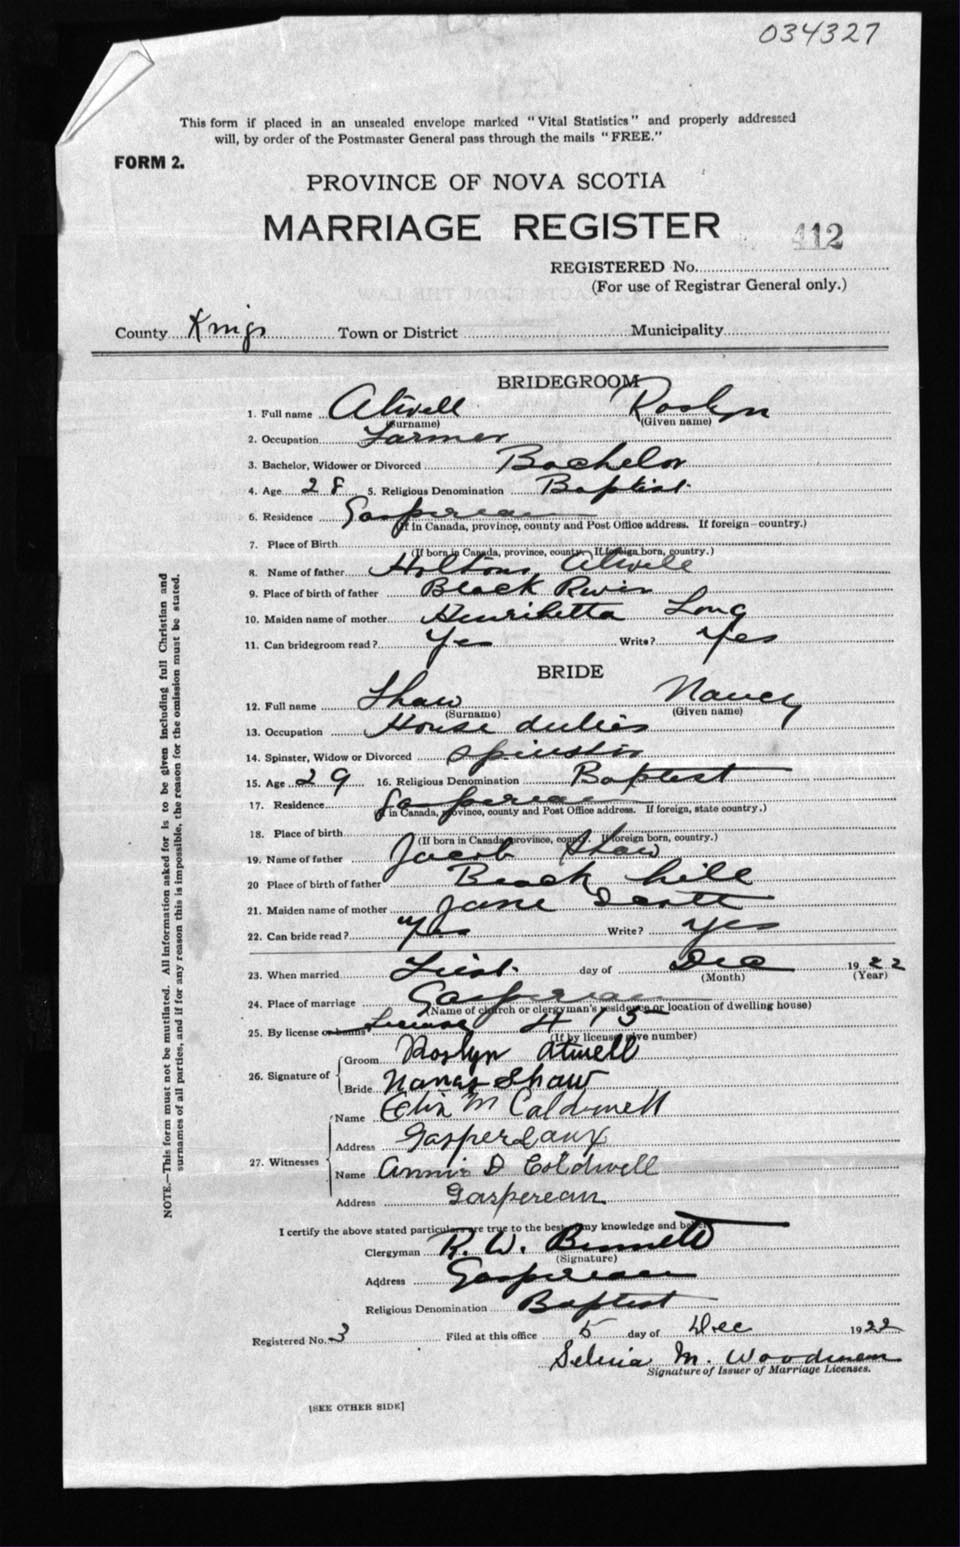 034327
This form if placed in an unsealed envelope marked "Vital Statistics" and properly addressed
will, by order of the Postmaster General pass through the mails "FREE."
FORM 2.
PROVINCE OF NOVA SCOTIA
MARRIAGE REGISTER
412
REGISTERED No.
(For use of Registrar General only.)
County Kings Town or District Municipality
BRIDEGROOM
1. Full name Atwell Roslyn
(Surname) (Given name)
2. Occupation Farmer
3. Bachelor, Widower or Divorced Bachelor
4. Age 28 5. Religious Denomination Baptist
6. Residence Gaspereau
(If in Canada, province, county and Post Office address. If foreign—country.)
7. Place of Birth
(If born in Canada, province, county. If foreign born, country.)
8. Name of father Atwell
9. Place of birth of father Black River
10. Maiden name of mother Henrihetta Long
11. Can bridegroom read? Yes Write? Yes
BRIDE
12. Full name Shaw Nancy
(Surname) (Given name)
13. Occupation House duties
14. Spinster, Widow or Divorced Spinster
15. Age 29 16. Religious Denomination Baptist
17. Residence Gaspereau
(If in Canada, province, county and Post Office address. If foreign, state country.)
18. Place of birth
(If born in Canada, province, county. If foreign born, country.)
19. Name of father Jacob Shaw
20 Place of birth of father hill
21. Maiden name of mother Jane
22. Can bride read? Yes Write? Yes
23. When married First day of Dec 1922
(Month) (Year)
24. Place of marriage Gaspereau
(Name of church or clergyman's residence or location of dwelling house)
25. By license or banns License 413
(If by license give number)
26. Signature of Groom Roslyn Atwell
Bride Nancy Shaw
27. Witnesses Name M Caldwell
Address Gaspereaux
Name Annie D Coldwell
Address Gaspereau
I certify the above stated particulars are true to the best of my knowledge and belief.
Clergyman R. W. Bennett
(Signature)
Address Gaspereau
Religious Denomination Baptist
Registered No. 3 Filed at this office 5 day of Dec 1922
M. Woodman
Signature of Issuer of Marriage Licenses.
[SEE OTHER SIDE]
NOTE.—This form must not be mutilated. All information asked for is to be given including full Christian and
surnames of all parties, and if for any reason this is impossible, the reason for the omission must be stated.